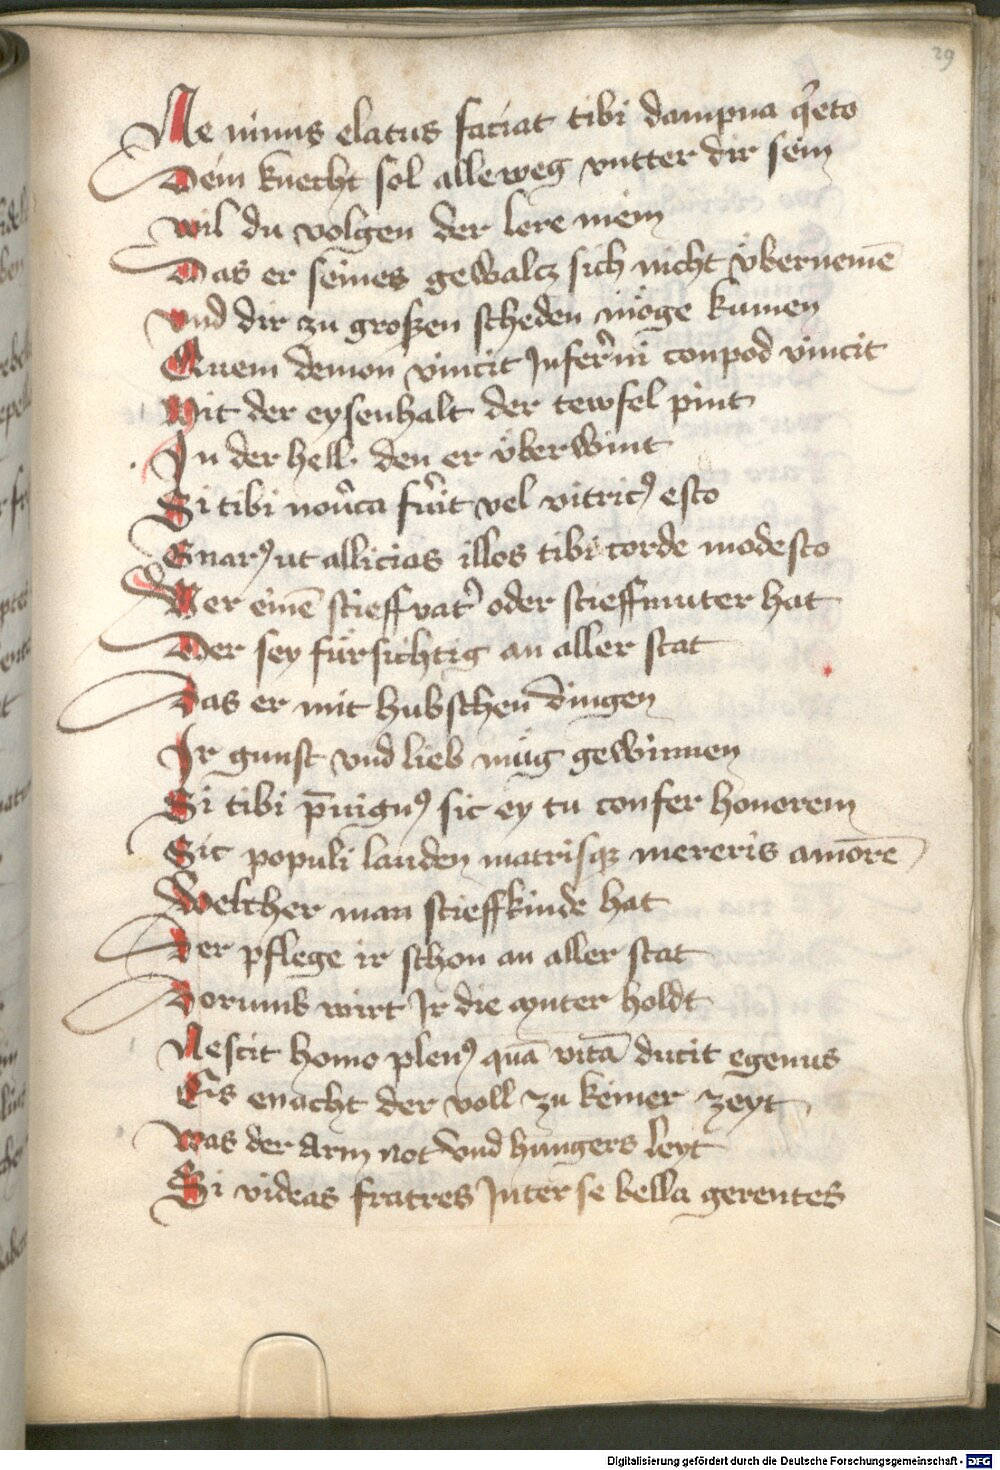 29
Ne nimis elatus faciat tibi dampna q̾eto
Dein knecht sol alleweg vntter dir sein
wil du volgen der lere mein
Das er seines gewalcz sich nicht v̈berneme̅
vnd dir zu großen scheden möge kumen
Quem demon vincit Jnfer̾ni conpod vincit
Mit der eysenhalt der tewfel pint
Jn der hell den er v̈berwint
Si tibi nou̾ca fu̾it vel vitricꝰ esto
Gnarꝰ ut allicias illos tibi corde modesto
Wer eine̅ stieffvat̾ oder stieffmuter hat
Der sey fürsichtig an aller stat
Das er mit hubschen dingen
Jr gunst vnd lieb müg gewinnen
Si tibi p̅uignꝰ sic ey tu confer honorem
Sic populi lauden matrisqꝫ mereris amore̅
Welcher man stieffkinde hat
Der pflege ir schon an aller stat
Dorumb wirt Jr die muter holdt
Nescit homo plenꝰ qua̅ vita̅ ducit egenus
Es enacht der voll zu keiner zeyt
was der Arm not vnd hungers leyt
Si videas fratres Jnter se bella gerentes
Digitalisierung gefördert durch die Deutsche Forschungsgemeinschaft - DFG